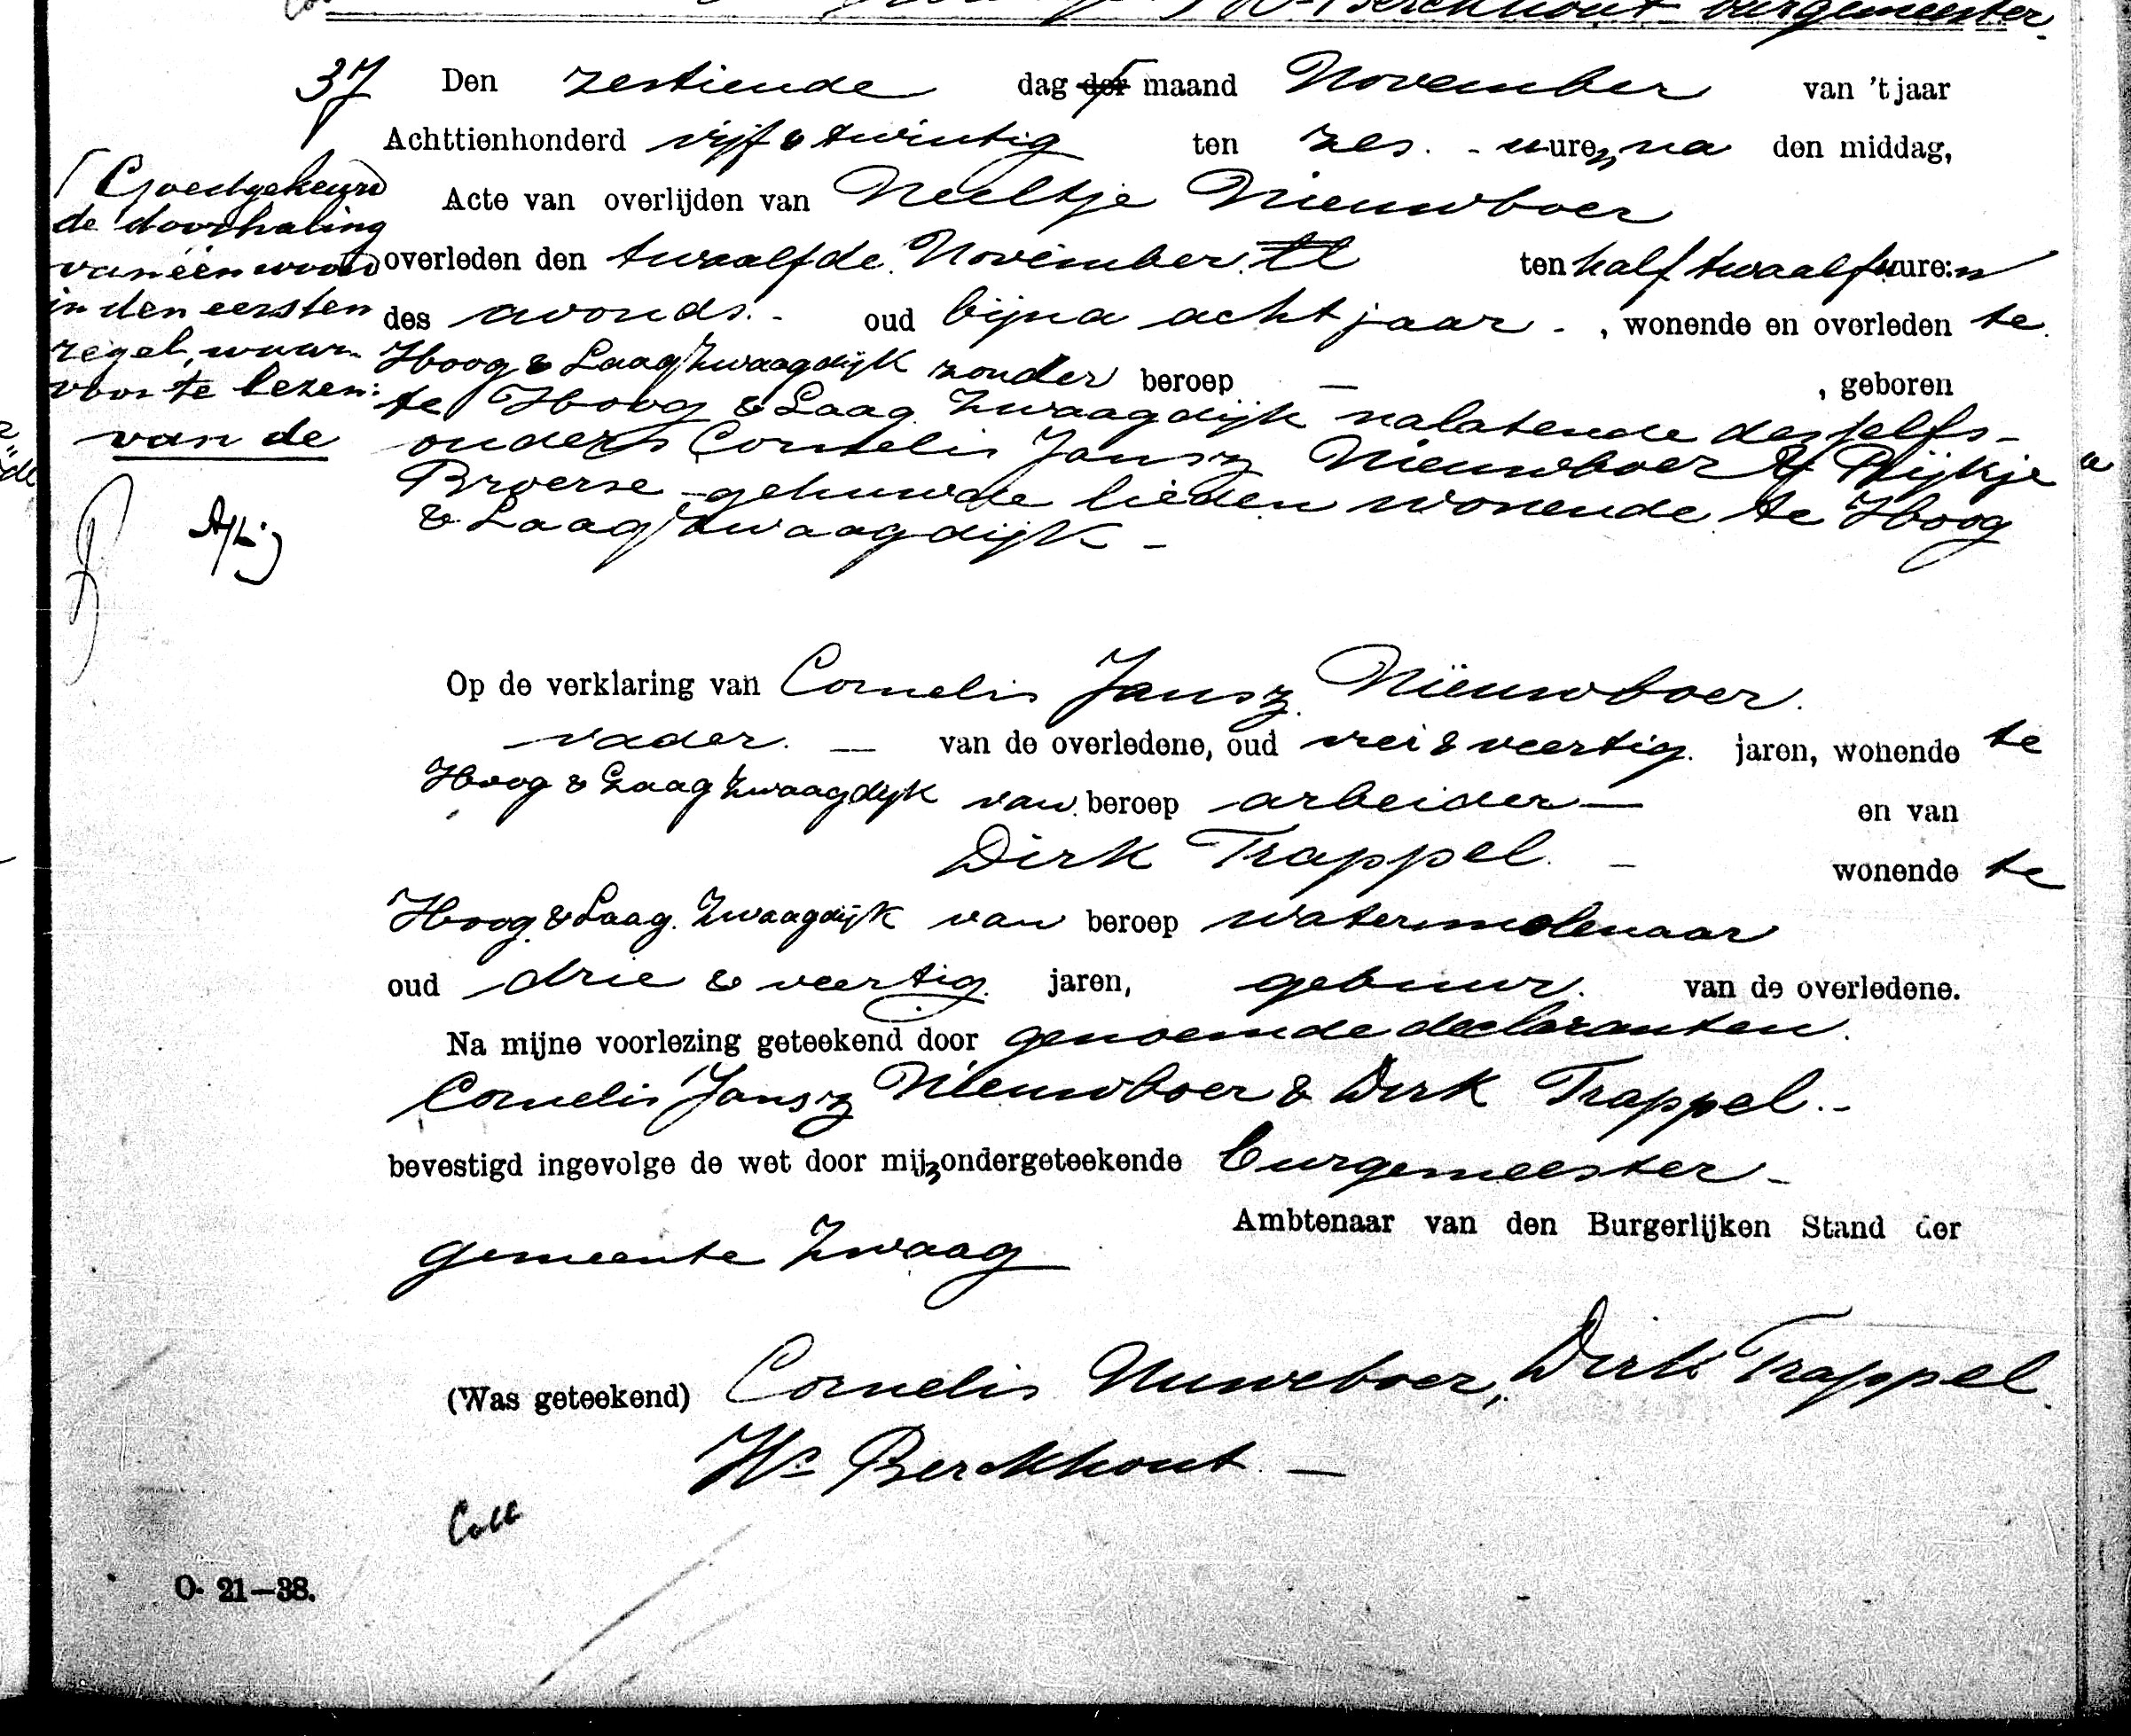 Berckhout burgemeester
37 Den zestiende dag der maand November van 't jaar
Achttienhonderd vijf & twintig ten zes. - uure, na den middag,
Acte van overlijden van Neeltje Nieuwboer
overleden den twaalfde November. ten half twaalf uure:n
des avonds. - oud bijna acht jaar - , wonende en overleden te
Hoog & Laag Zwaagdijk zonder beroep — , geboren
te Hoog & Laag Zwaagdijk nalatende deszelfs
ouders Cornelis Jansz Nieuwboer & Rijkje
Broerse - gehuwde lieden wonende te Hoog
& Laag Zwaagdijk -
Goedgekeurd
de doorhaling
van één woord
in den eersten
regel, waar-
voor te lezen:
van de
Op de verklaring van Cornelis Jansz. Nieuwboer.
vader. — van de overledene, oud vrei & veertig. jaren, wonende te
Hoog & Laag Zwaagdijk van beroep arbeider — en van
Dirk Trappel. - wonende te
Hoog & Laag. Zwaagdijk van beroep watermolenaar
oud drie & veertig. jaren, gebuur. van de overledene.
Na mijne voorlezing geteekend door genoemde declaranten.
Cornelis Jansz Nieuwboer & Dirk Trappel. -
bevestigd ingevolge de wet door mij, ondergeteekende burgemeester -
Ambtenaar van den Burgerlijken Stand der
gemeente Zwaag
(Was geteekend) Cornelis Nuweboer, Dirk Trappel.
Ws Berckhout. —
Coll
O. 21—38.